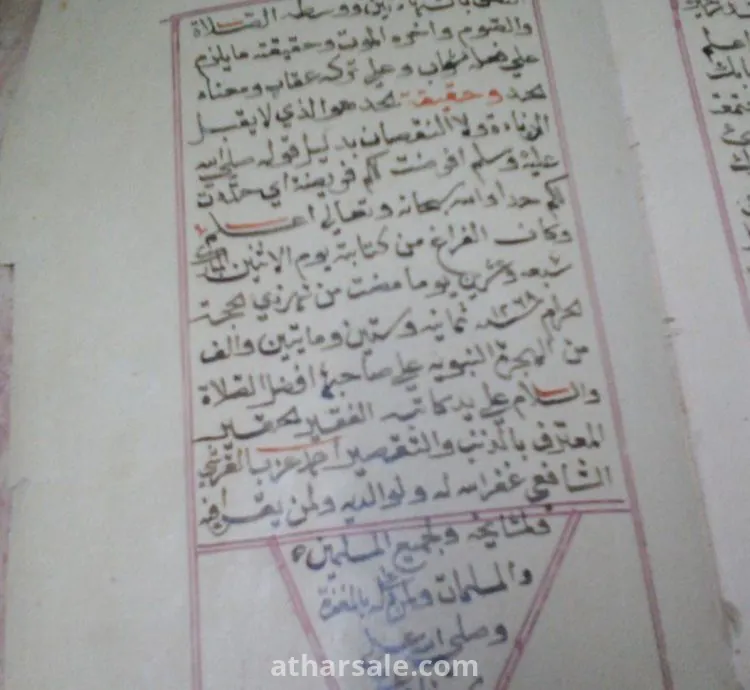 ووسطه الصلاة
والصوم واخره الموت وحقيقته ما يلزم
على فعله ثواب وعلى تركه عقاب ومعناه
الحد وحقيقة الحد هو الذي لا يقبل
الزيادة ولا النقصان بدليل قوله صلى الله
عليه وسلم افرضت لكم فريضة اي حددت
لكم حدا والله سبحانه وتعالى اعلم
وكان الفراغ من كتابة يوم الاثنين
سبعه وعشري يوما مضت من شهر ذي الحجة
الحرام ١٢٦٨ سنه ثمانيه وستين ومايتين والف
من الهجرة النبويه على صاحبها افضل الصلاة
والسلام على يد كاتبه الفقير الحقير
المعترف بالذنب والتقصير احمد عزب القرشي
الشافعي غفر الله له ولوالديه ولمن يقرا فيه
ولمشايخه ولجميع المسلمين
والمسلمات ولمن دعا له بالمغفرة
وصلى الله على
atharsale.com